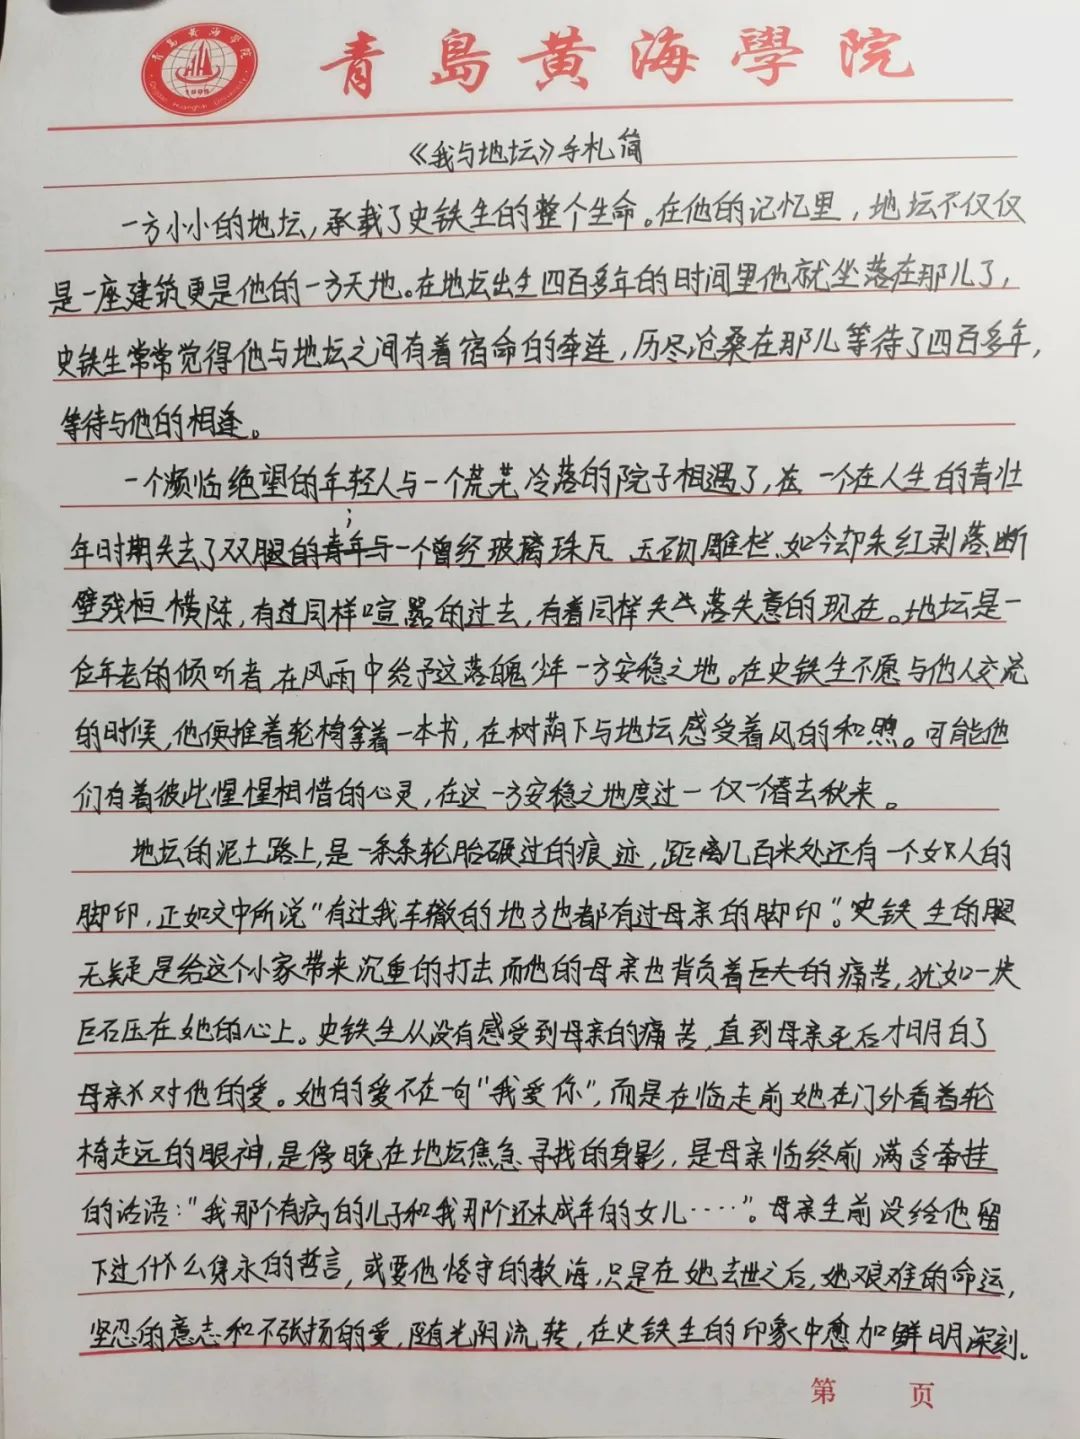 青岛黄海学院
1996
青島黄海學院
《我与地坛》手札简
一方小小的地坛，承载了史铁生的整个生命。在他的记忆里，地坛不仅仅
是一座建筑更是他的一方天地。在地坛出生四百多年的时间里他就坐落在那儿了，
史铁生常常觉得他与地坛之间有着宿命的牵连，历尽沧桑在那儿等待了四百多年，
等待与他的相逢。
一个濒临绝望的年轻人与一个荒芜冷落的院子相遇了，在一个在人生的青壮
年时期失去了双腿的青年与；一个曾经玻璃珠瓦玉砌雕栏，如今却朱红剥落、断
壁残桓横陈，有过同样喧嚣的过去，有着同样失落失意的现在。地坛是一
位年老的倾听者，在风雨中给予这落魄少年一方安稳之地。在史铁生不愿与他人交流
的时候，他便推着轮椅拿着一本书，在树荫下与地坛感受着风的和煦。可能他
们有着彼此惺惺相惜的心灵，在这一方安稳之地度过一仅一个春去秋来。
地坛的泥土路上，是一条条轮胎碾过的痕迹，距离几百米处还有一个女人的
脚印，正如文中所说“有过我车辙的地方也都有过母亲的脚印”。史铁生的腿
无疑是给这个小家带来沉重的打击而他的母亲也背负着巨大的痛苦，犹如一块
巨石压在她的心上。史铁生从没有感受到母亲的痛苦，直到母亲死后才明白了
母亲对他的爱。她的爱不在一句“我爱你”，而是在临走前她在门外看着轮
椅走远的眼神，是傍晚在地坛焦急寻找的身影，是母亲临终前满含牵挂
的话语：“我那个有病的儿子和我那个还未成年的女儿……”。母亲生前没给他留
下过什么隽永的哲言，或要他恪守的教海，只是在她去世之后，她艰难的命运，
坚忍的意志和不张扬的爱，随着光阴流转，在史铁生的印象中愈加鲜明深刻。
第 页